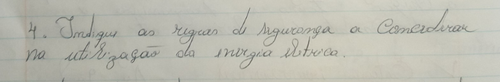 4. Indique as regras de segurança a considerar
na utilização da energia elétrica.